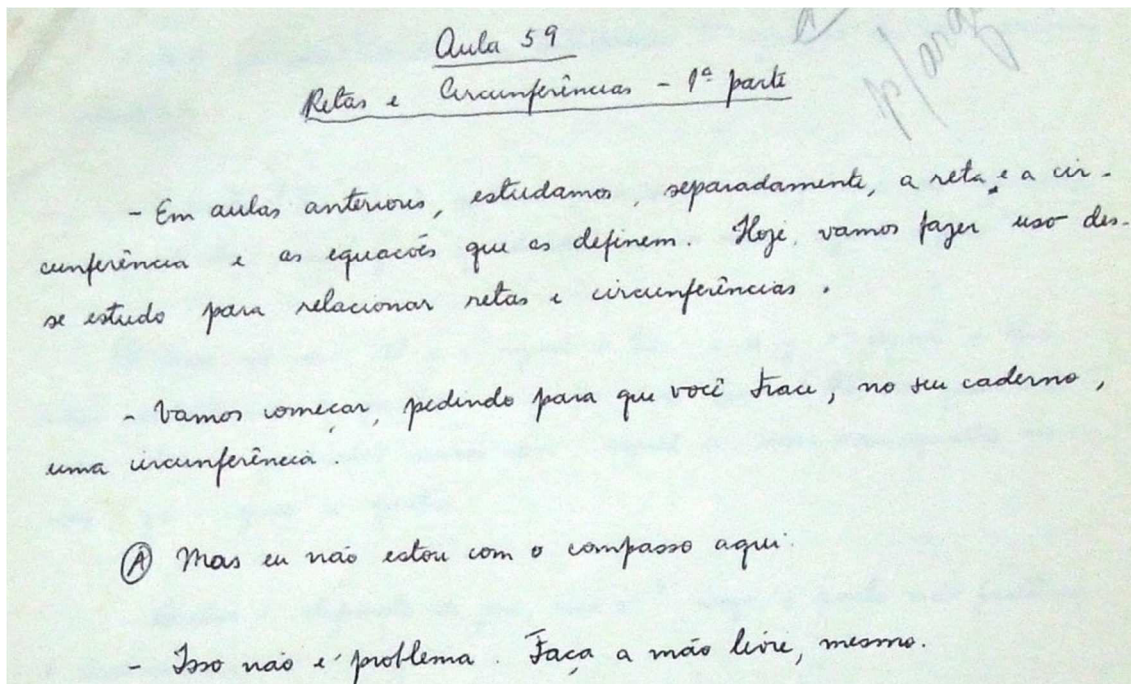 Aula 59
Retas e Circunferências - 1ª parte
p/
- Em aulas anteriores, estudamos, separadamente, a reta e a cir-
cunferência e as equações que as definem. Hoje, vamos fazer uso des-
se estudo para relacionar retas e circunferências.
- Vamos começar, pedindo para que você trace, no seu caderno,
uma circunferência.
A Mas eu não estou com o compasso aqui.
- Isso não é problema. Faça a mão livre, mesmo.